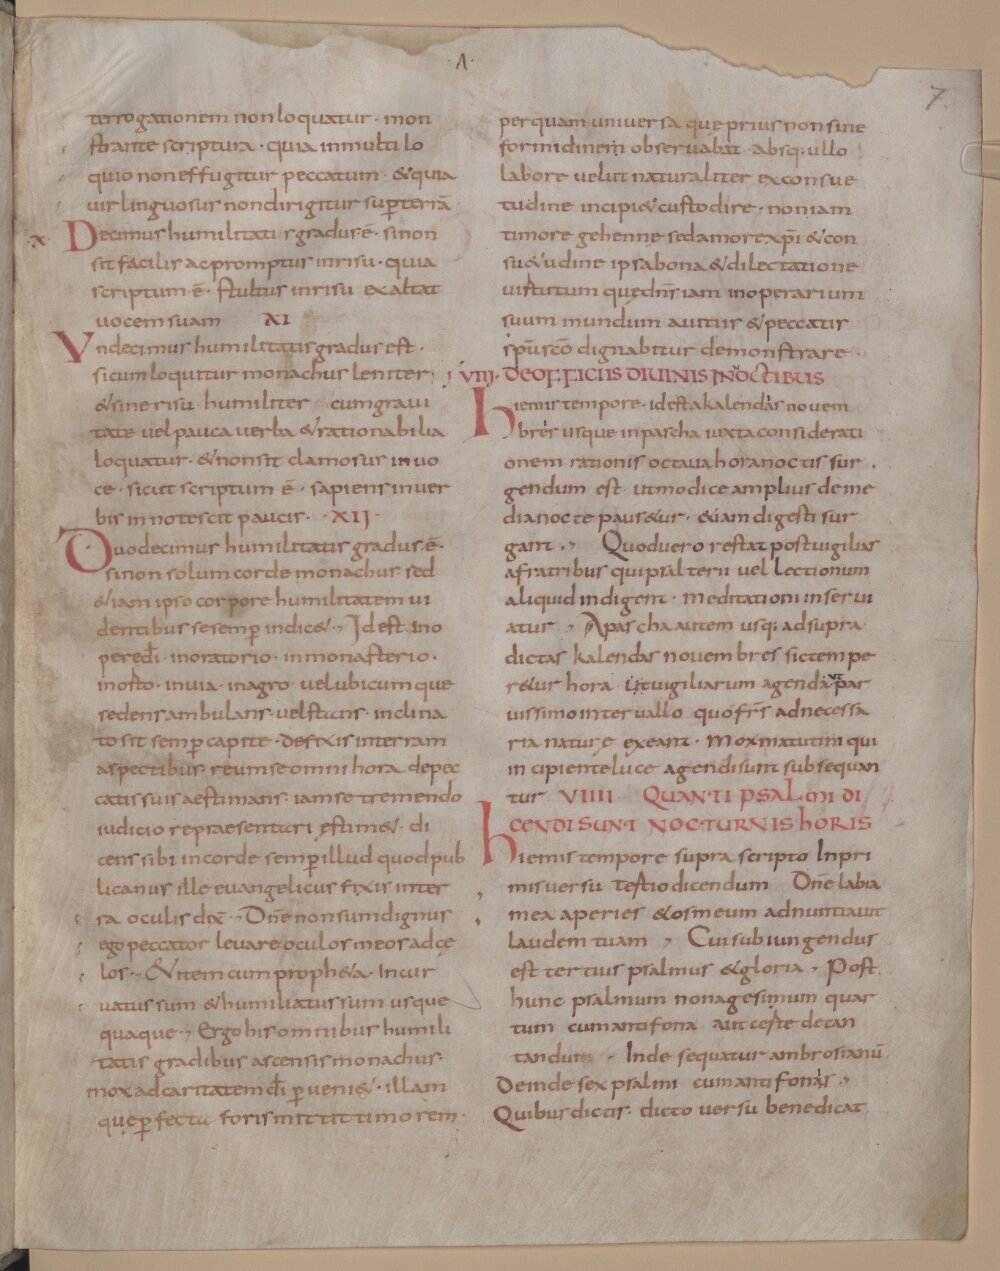 ·Λ·
7.
terrogationem non loquatur · mon
strante scriptura · quia in multi lo
quio non effugitur peccatum · & quia
uir linguosus non dirigitur sup terrā
·x· Decimus humilitatis gradus ē · si non
sit facilis ac promptus in risu · quia
scriptum ē · stultus in risu exaltat
uocem suam XI
Vndecimus humilitatis gradus est ·
si cum loquitur monachus leniter
& sine risu · humiliter cum graui
tate uel pauca uerba & rationabilia
loquatur · & non sit clamosus in uo
ce · sicut scriptum ē · sapiens in uer
bis innotescit paucis · · XII ·
Duodecimus humilitatis gradus ē ·
si non solum corde monachus sed
&iam ipso corpore humilitatem ui
dentibus se semp indic& · Id est in o
pere di · in oratorio · in monasterio ·
in orto · in uia · in agro · uel ubicumque
sedens ambulans · uel stans · inclina
to sit semp capite · defixis in terram
aspectibus · reum se omni hora de pec
catis suis aestimans · iam se tremendo
iudicio repraesentari estim& · di
cens sibi in corde semp illud quod pub
licanus ille euangelicus fixis in ter
ra oculis dix · Dne non sum dignus
ego peccator leuare oculos meos ad cę
los · Et item cum proph&a · Incur
uatus sum & humiliatus sum usque
quaque · Ergo his omnibus humili
tatis gradibus ascensis monachus
mox ad caritatem di pueni& · illam
que pfecta foris mittit timorem ·
per quam uniuersa que prius non sine
formidinem obseruabat · absq; ullo
labore uelut naturaliter ex consue
tudine incipi& custodire · non iam
timore gehenne sed amore xpi & con
su&udine ipsa bona & dilectatione
uirtutum que dns iam in operarium
suum mundum a uitiis & peccatis
spu sco dignabitur demonstrare ·
VIII · DE OFFICIIS DIUINIS IN NOCTIBUS
hiemis tempore · id est a kalendas nouem
bres usque in pascha iuxta considerati
onem rationis octaua hora noctis sur
gendum est · ut modice amplius de me
dia nocte paus&ur · &iam digesti sur
gant · Quod uero restat post uigilias
a fratribus qui psalterii uel lectionum
aliquid indigent · meditationi inserui
atur · A pascha autem usq; ad supra
dictas kalendas nouembres sic tempe
r&ur hora ut uigiliarum agenda ut par
uissimo interuallo quo frs ad necessa
ria naturę exeant · mox matutini qui
incipiente luce agendi sunt subsequan
tur VIIII QUANTI PSALMI DI
CENDI SUNT NOCTURNIS HORIS
hiemis tempore supra scripto In pri
mis uersu tertio dicendum Dne labia
mea aperies & os meum adnuntiauit
laudem tuam · Cui subiungendus
est tertius psalmus & gloria · Post
hunc psalmum nonagesimum quar
tum cum antifona aut certe decan
tandum · Inde sequatur ambrosianū
Deinde sex psalmi cum antifonas ·
Quibus dictis · dicto uersu benedicat